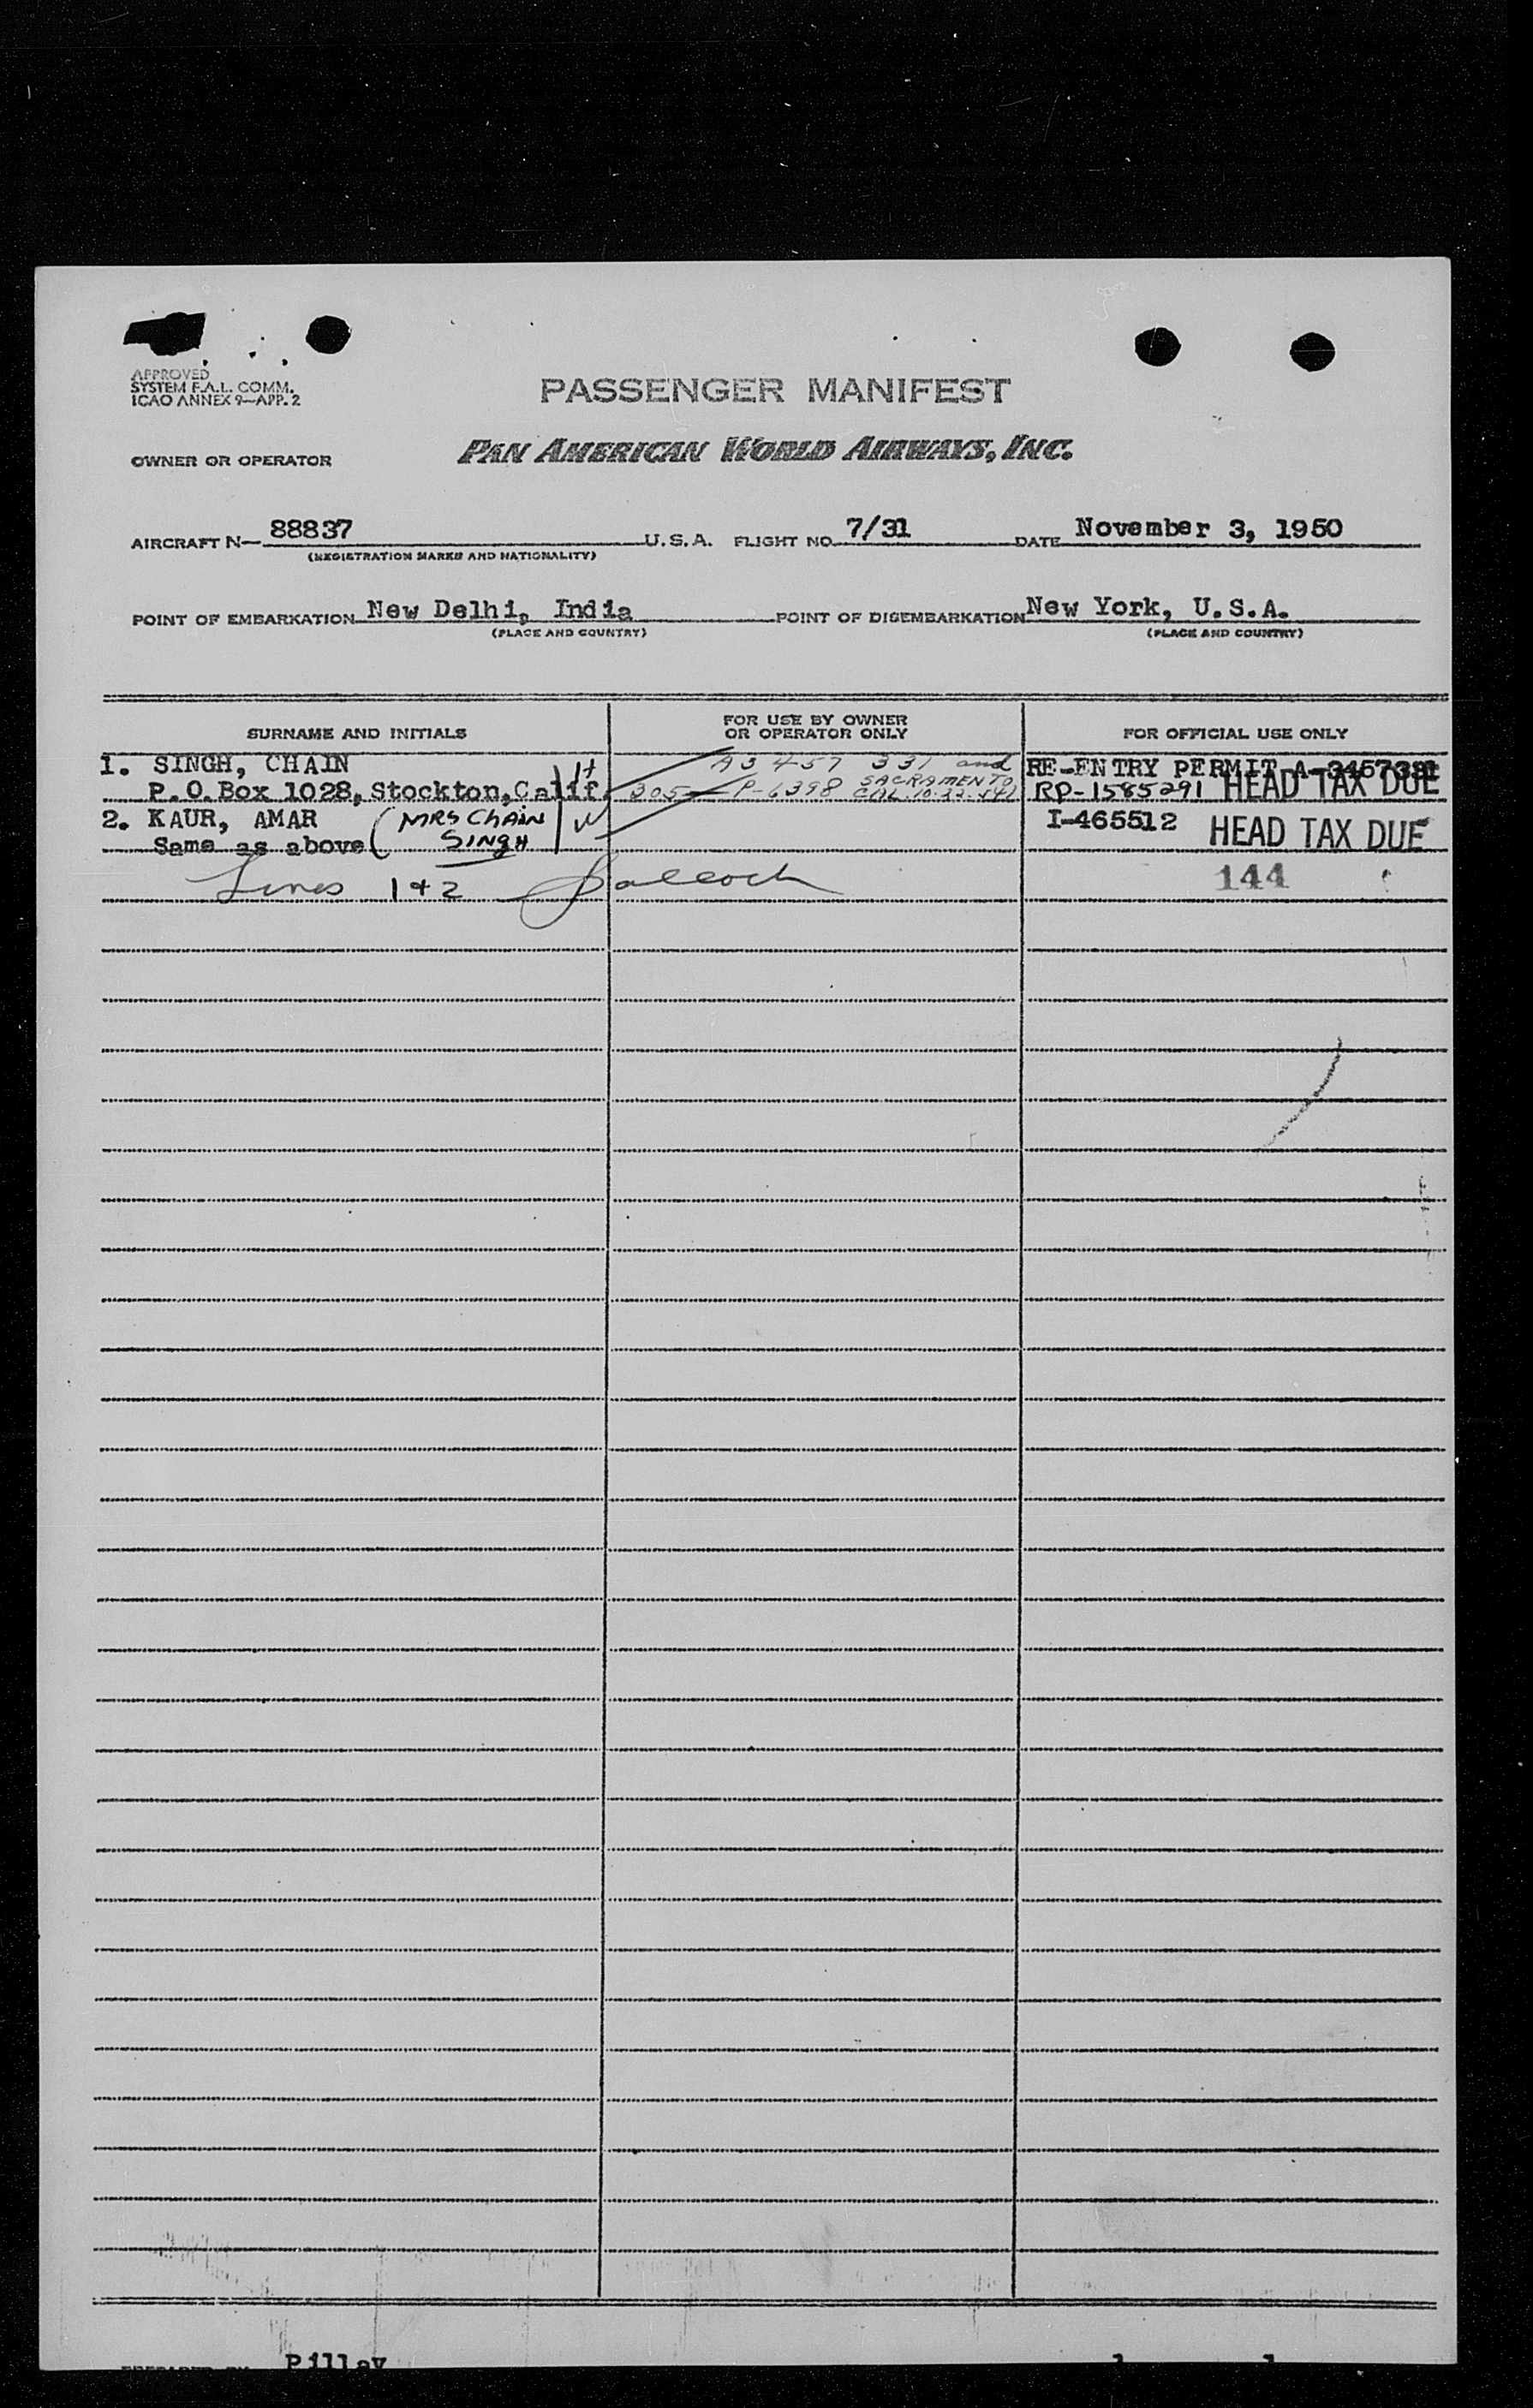 APPROVED
SYSTEM F.A.L. COMM.
ICAO ANNEX 9—APP. 2
PASSENGER MANIFEST
OWNER OR OPERATOR PAN AMERICAN WORLD AIRWAYS, INC.
AIRCRAFT N— 88837 U.S.A. FLIGHT NO. 7/31 DATE November 3, 1950
(REGISTRATION MARKS AND NATIONALITY)
POINT OF EMBARKATION New Delhi, India POINT OF DISEMBARKATION New York, U.S.A.
(PLACE AND COUNTRY) (PLACE AND COUNTRY)
SURNAME AND INITIALS FOR USE BY OWNER OR OPERATOR ONLY FOR OFFICIAL USE ONLY
1. SINGH, CHAIN A3 457 331 and RE-ENTRY PERMIT A-3457331
P.O. Box 1028, Stockton, Calif. 305 P-6398 SACRAMENTO CAL. RP-1585291 HEAD TAX DUE
2. KAUR, AMAR (MRS CHAIN I-465512 HEAD TAX DUE
Same as above SINGH
Lines 1 + 2 144
Pillay